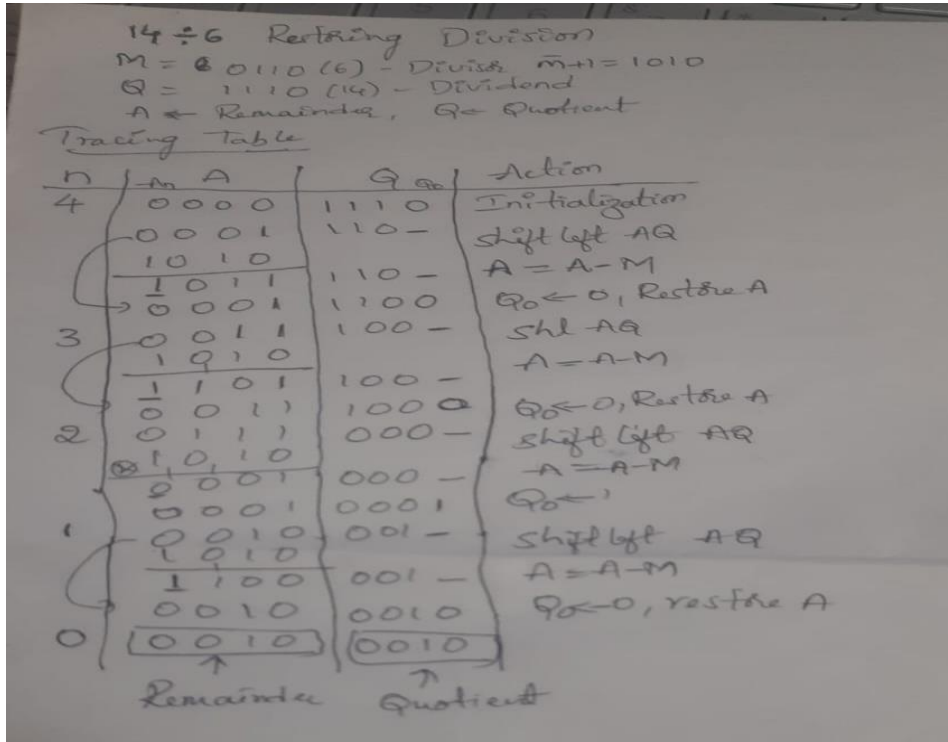 14 ÷ 6 Restoring Division
M = 0110 (6) - Divisor m̄+1 = 1010
Q = 1110 (14) - Dividend
A ← Remainder, Q ← Quotient
Tracing Table
n An A Q Q0 Action
4 0000 1110 Initialization
0001 110- shift left AQ
1010 A = A-M
1011 110-
0001 1100 Q0 ← 0, Restore A
3 0011 100- Shl AQ
1010 A = A-M
1101 100-
0011 1000 Q0 ← 0, Restore A
2 0111 000- shift left AQ
1010 A = A-M
0001 000-
0001 0001 Q0 ← 1
1 0010 001- shift left AQ
1010
1100 001- A = A-M
0010 0010 Q0 ← 0, restore A
0 0010 0010
↑ ↑
Remainder Quotient